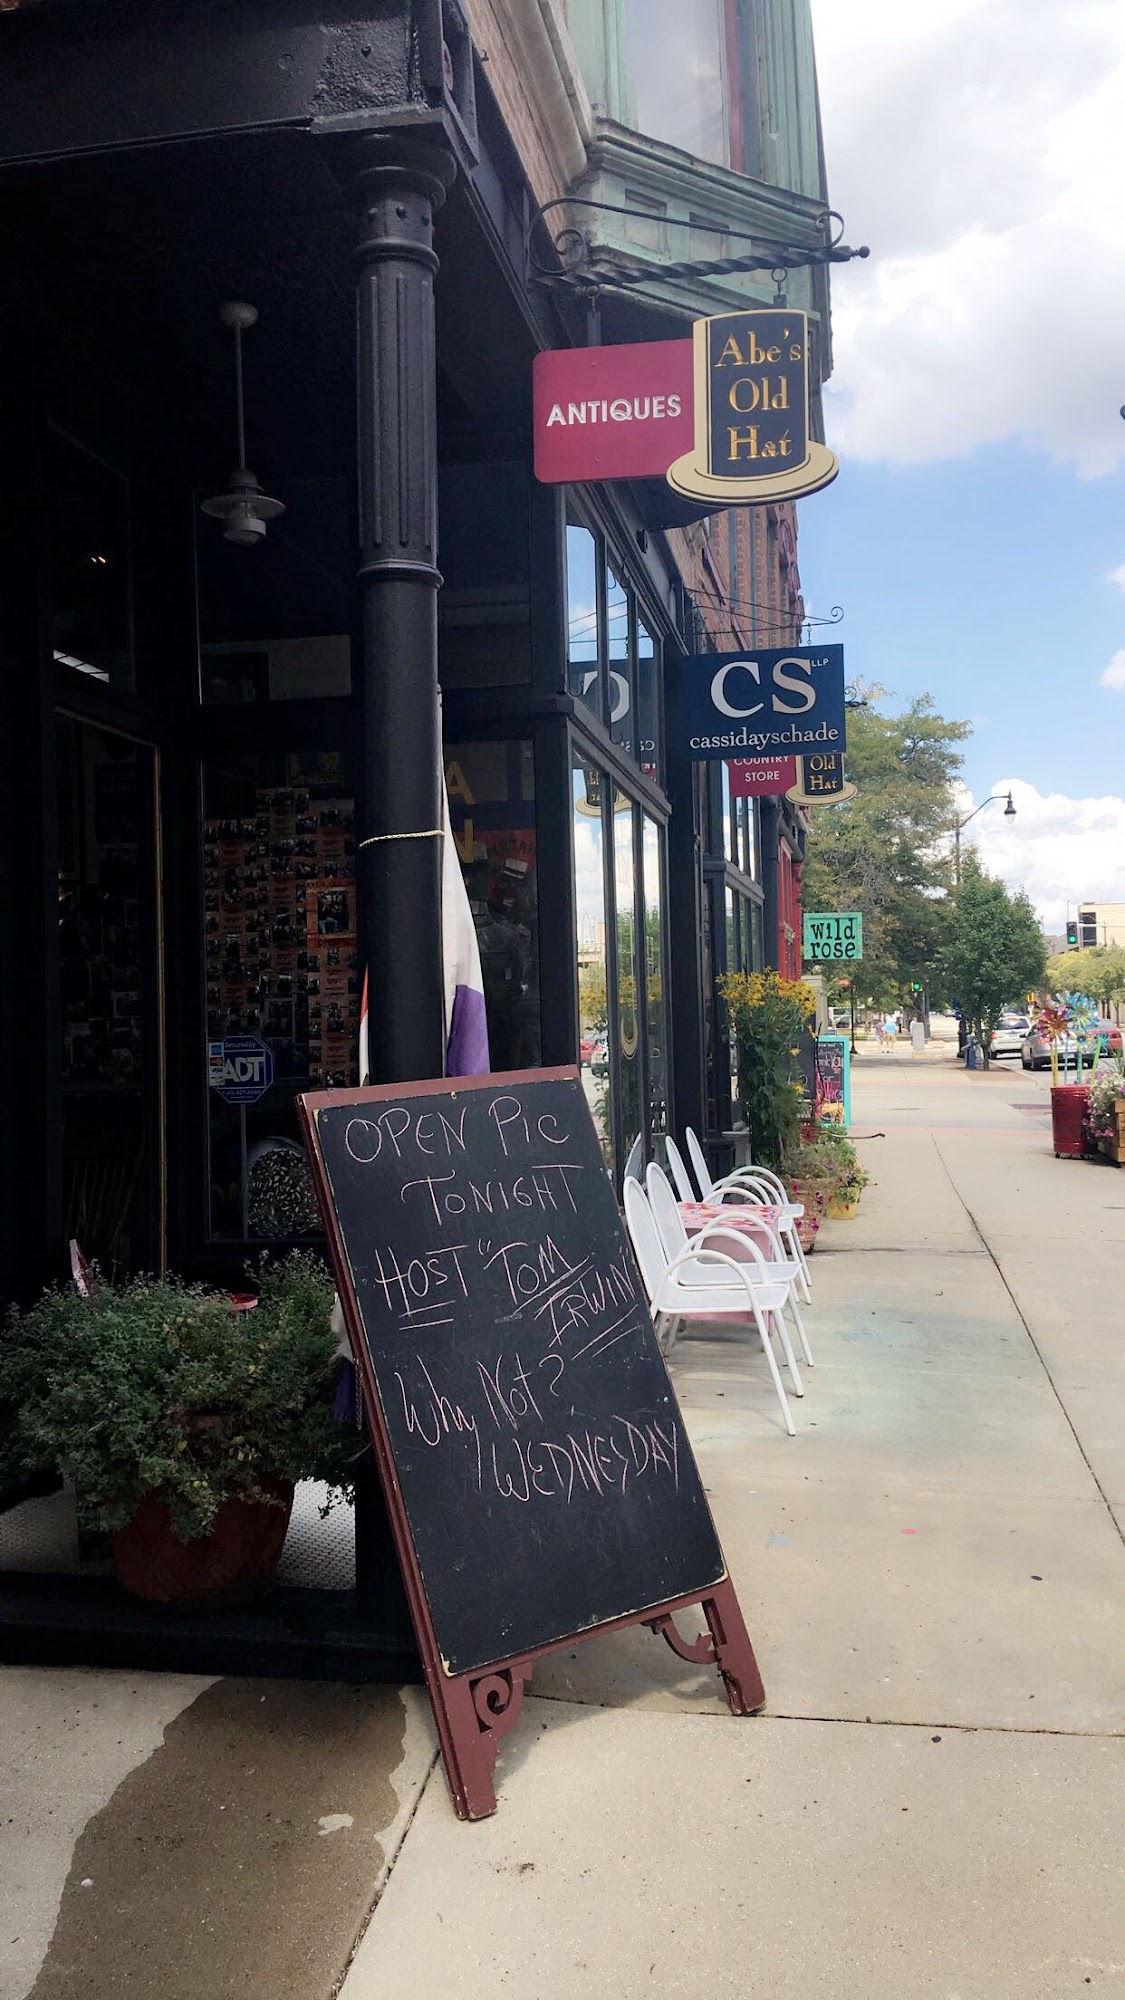 ANTIQUES
Abe's
Old
Hat
CS LLP
cassidayschade
COUNTRY
STORE
Old
Hat
wild
rose
Secured by
ADT
OPEN Pic
TONIGHT
HOST "TOM
IRWIN"
Why Not?
WEDNESDAY